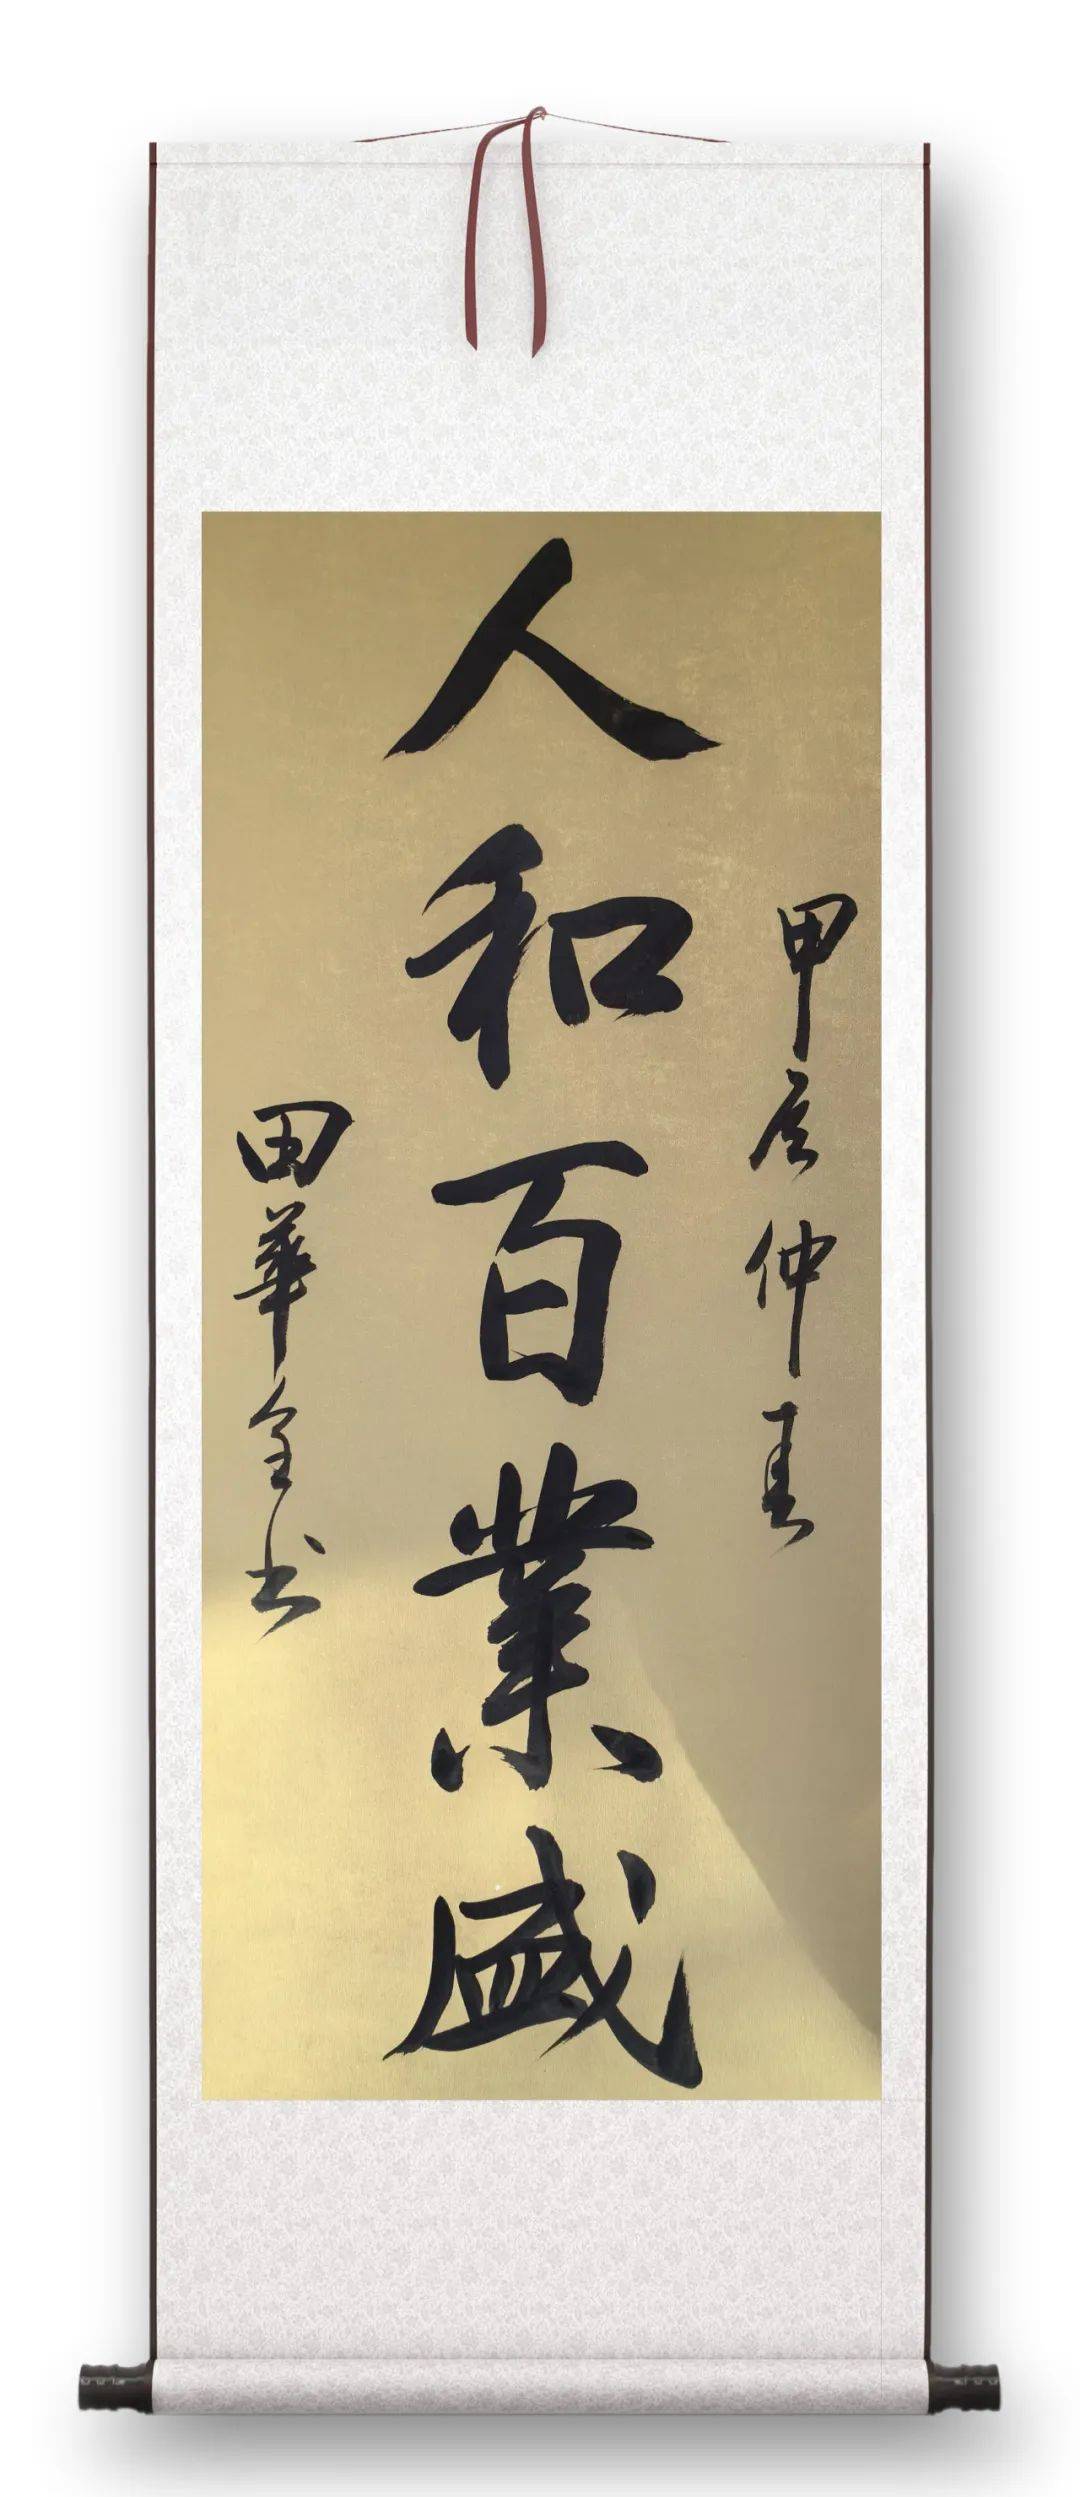 甲辰仲春
人和百業盛
田華全书